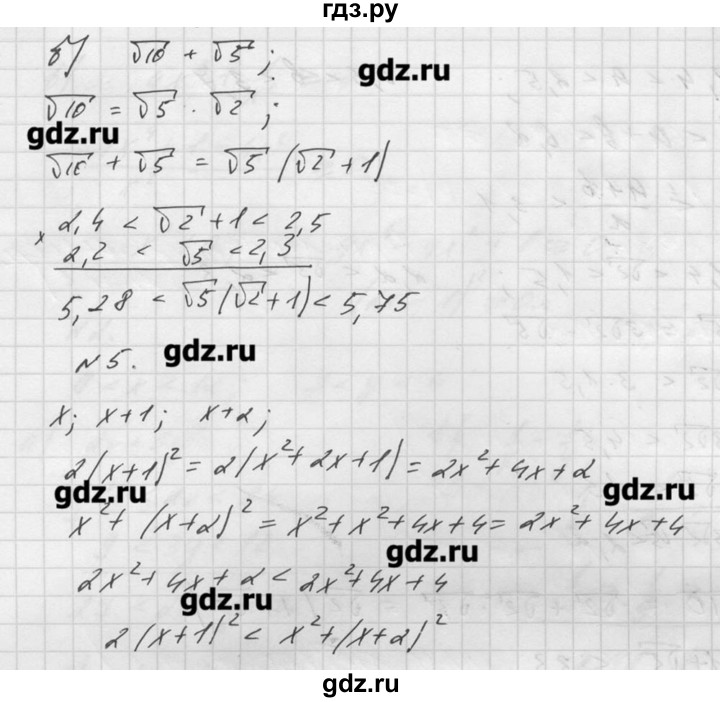 гдз.ру
б) √10 + √5;
gdz.ru
√10 = √5 · √2;
gdz.ru
√10 + √5 = √5 (√2 + 1)
× 2,4 < √2 + 1 < 2,5
2,2 < √5 < 2,3
5,28 < √5 (√2 + 1) < 5,75
№5.
gdz.ru
x; x+1; x+2;
2(x+1)² = 2(x² + 2x + 1) = 2x² + 4x + 2
gdz.ru
gdz.ru
x² + (x+2)² = x² + x² + 4x + 4 = 2x² + 4x + 4
gdz.ru
2x² + 4x + 2 < 2x² + 4x + 4
gdz.ru
2(x+1)² < x² + (x+2)²
gdz.ru